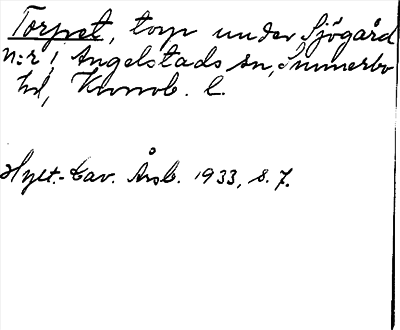 Torpet, torp under Sjögård
n:r 1, Angelstads sn, Sunnerbo
hd, Kronob. l.
Hylt.-Cav. Årsb. 1933, s. 7.